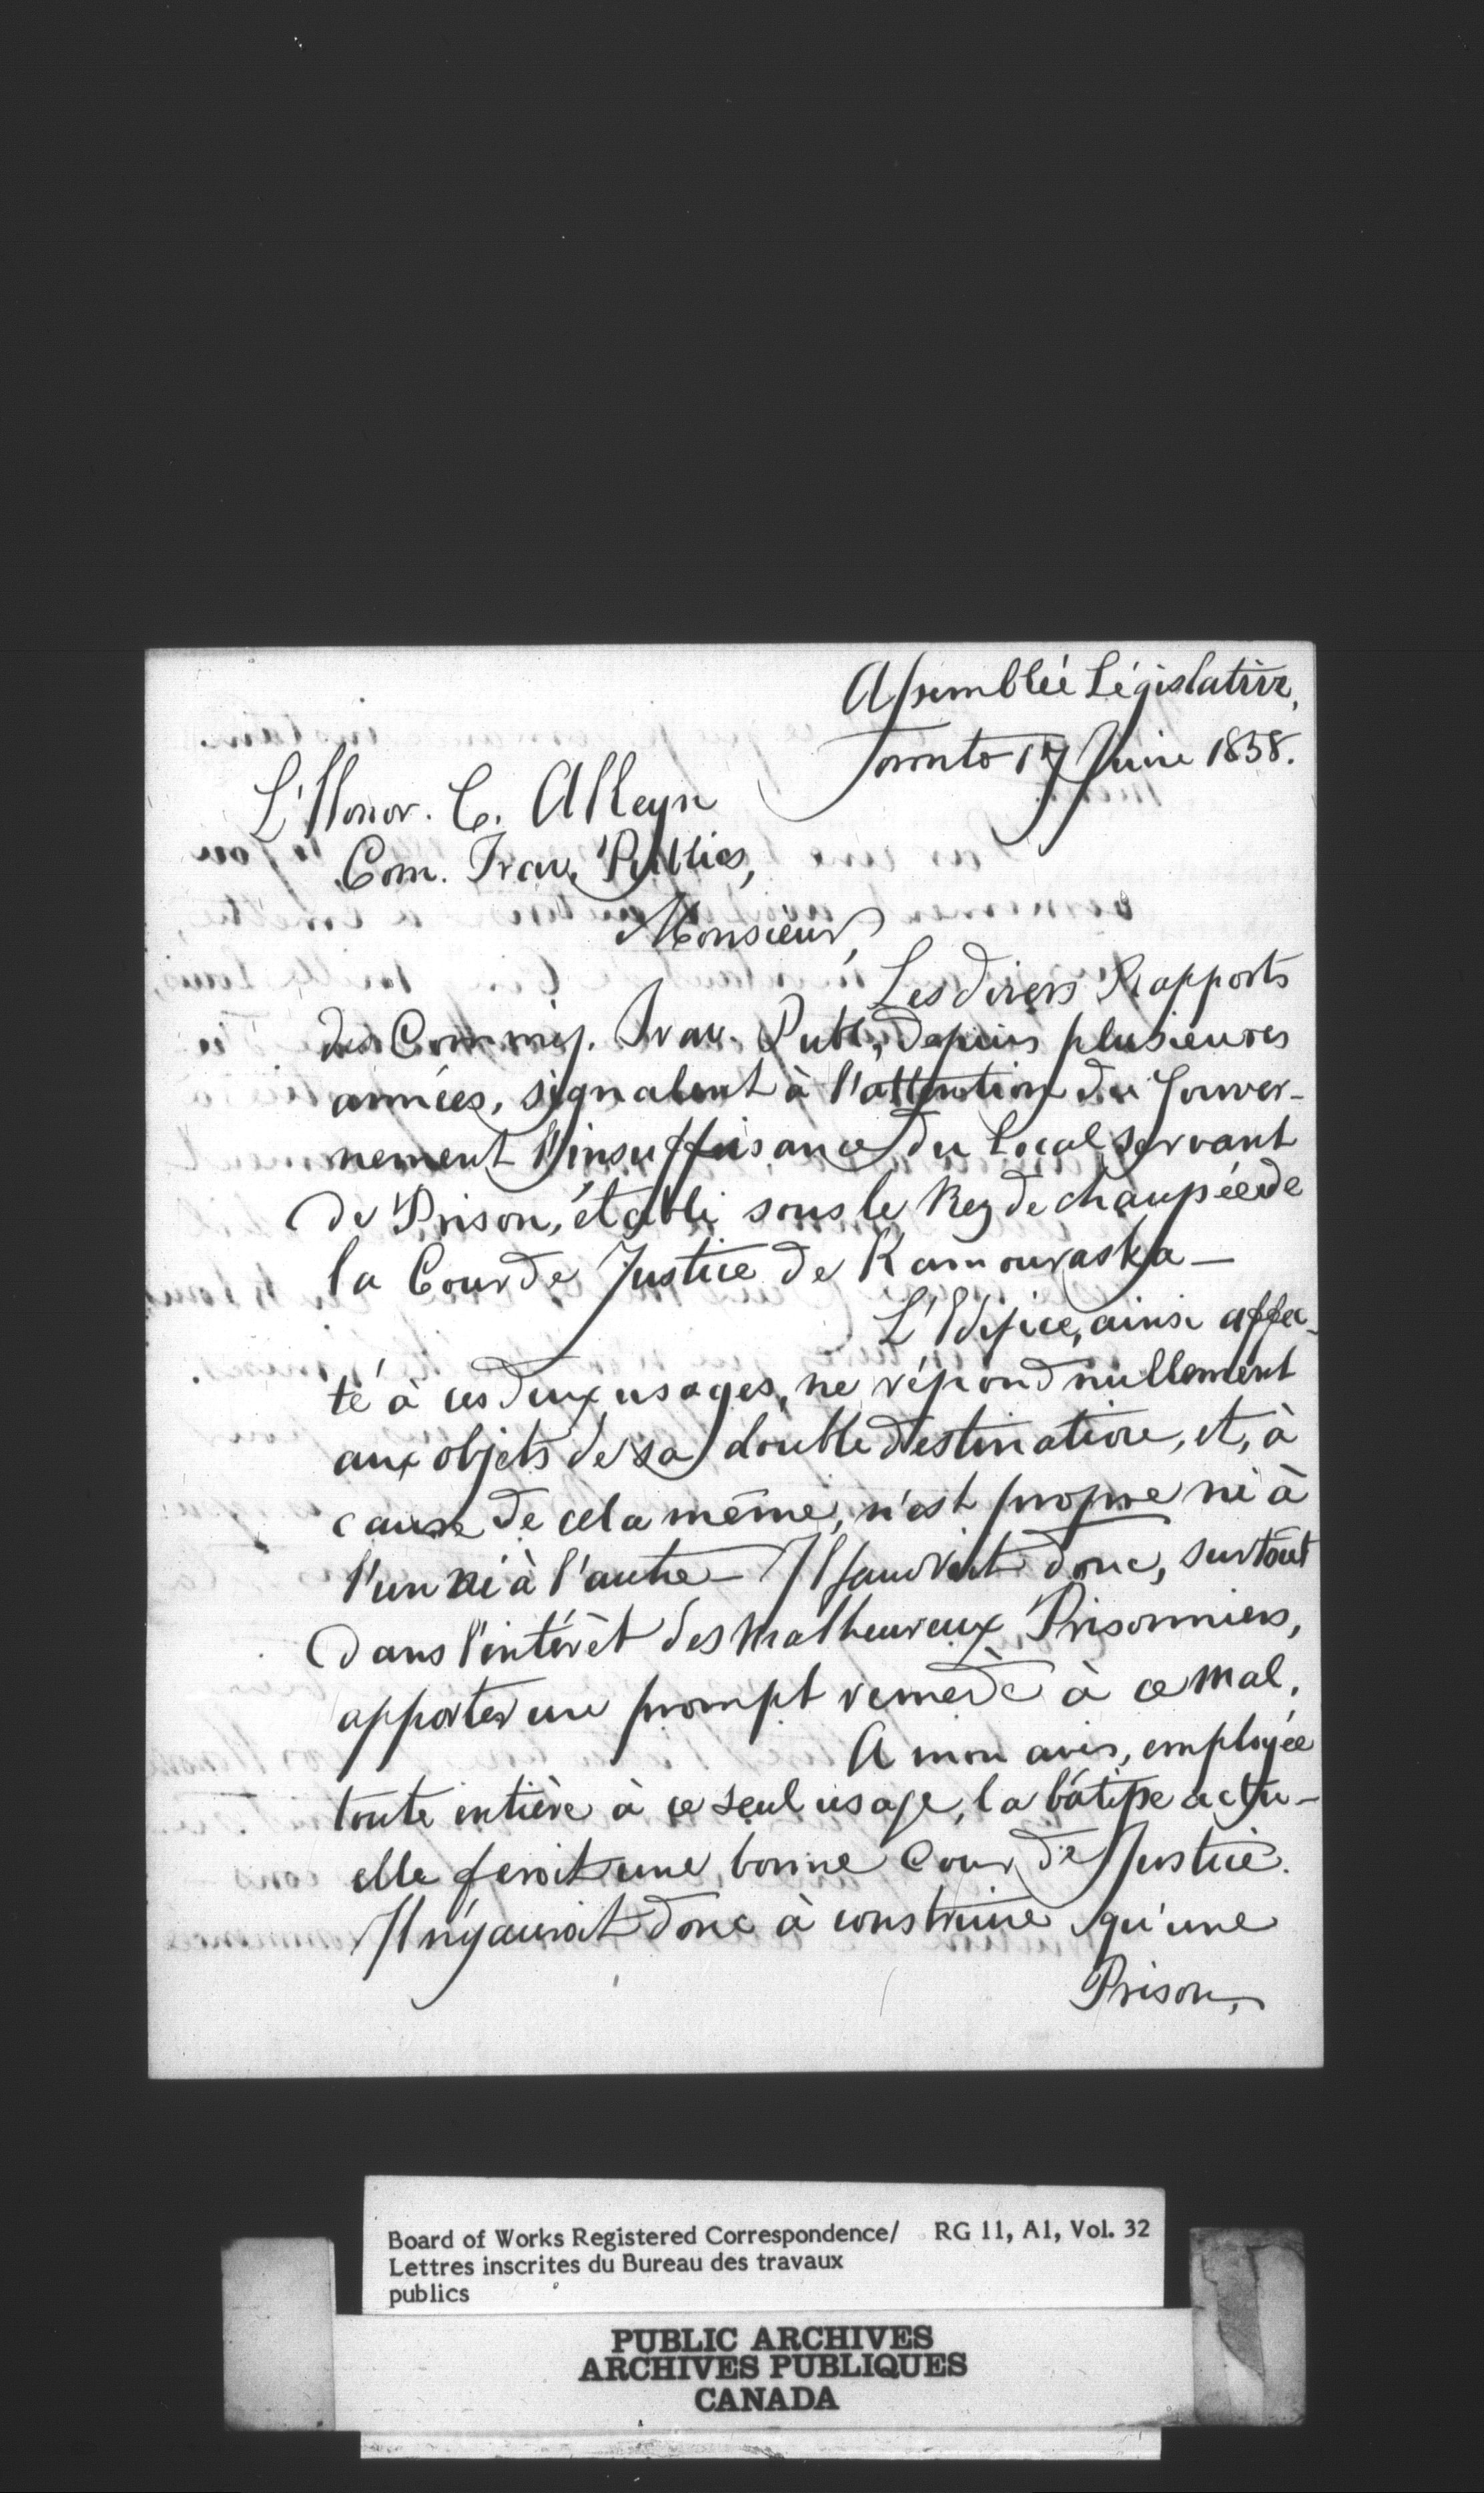 Assemblée Législative,
Toronto 17 Juin 1858.
L'Honor. C. Alleyn
Com. Trav. Publics,
Monsieur,
Les divers Rapports
des Commiss. Trav. Publ., depuis plusieures
années, signalent à l'attention du Gouver-
nement l'insuffisance du local servant
de Prison, établi sous le Rez de chaussée de
la Cour de Justice de Kamouraska —
L'Edifice, ainsi affec-
té à ces deux usages, ne répond nullement
aux objets de sa double destination, et, à
cause de cela même, n'est propre ni à
l'un ni à l'autre — Il faudrait donc, surtout
dans l'intérêt des malheureux Prisonniers,
apporter un prompt remède à ce mal.
A mon avis, employée
toute entière à ce seul usage, la bâtisse actu-
elle feroit une bonne Cour de Justice.
Il n'y auroit donc à construire qu'une
Prison,
Board of Works Registered Correspondence/ RG 11, A1, Vol. 32
Lettres inscrites du Bureau des travaux
publics
PUBLIC ARCHIVES
ARCHIVES PUBLIQUES
CANADA